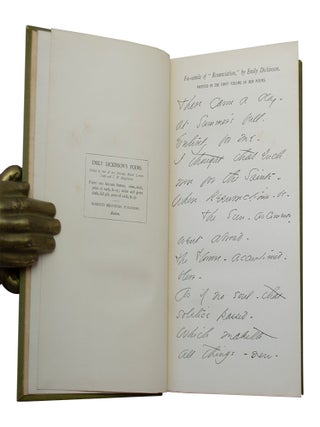 EMILY DICKINSON'S POEMS.
ROBERTS BROTHERS, PUBLISHERS,
Boston.
Fac-simile of "Renunciation," by Emily Dickinson.
PRINTED IN THE FIRST VOLUME OF HER POEMS.
There Came a Day -
at Summer's full.
Entirely for me -
I thought that such
were for the Saints -
When Resurrections - be -
The Sun - as common -
went abroad -
The flowers - accustomed -
blew -
As if no soul - that
solstice passed -
Which maketh
all things - new -